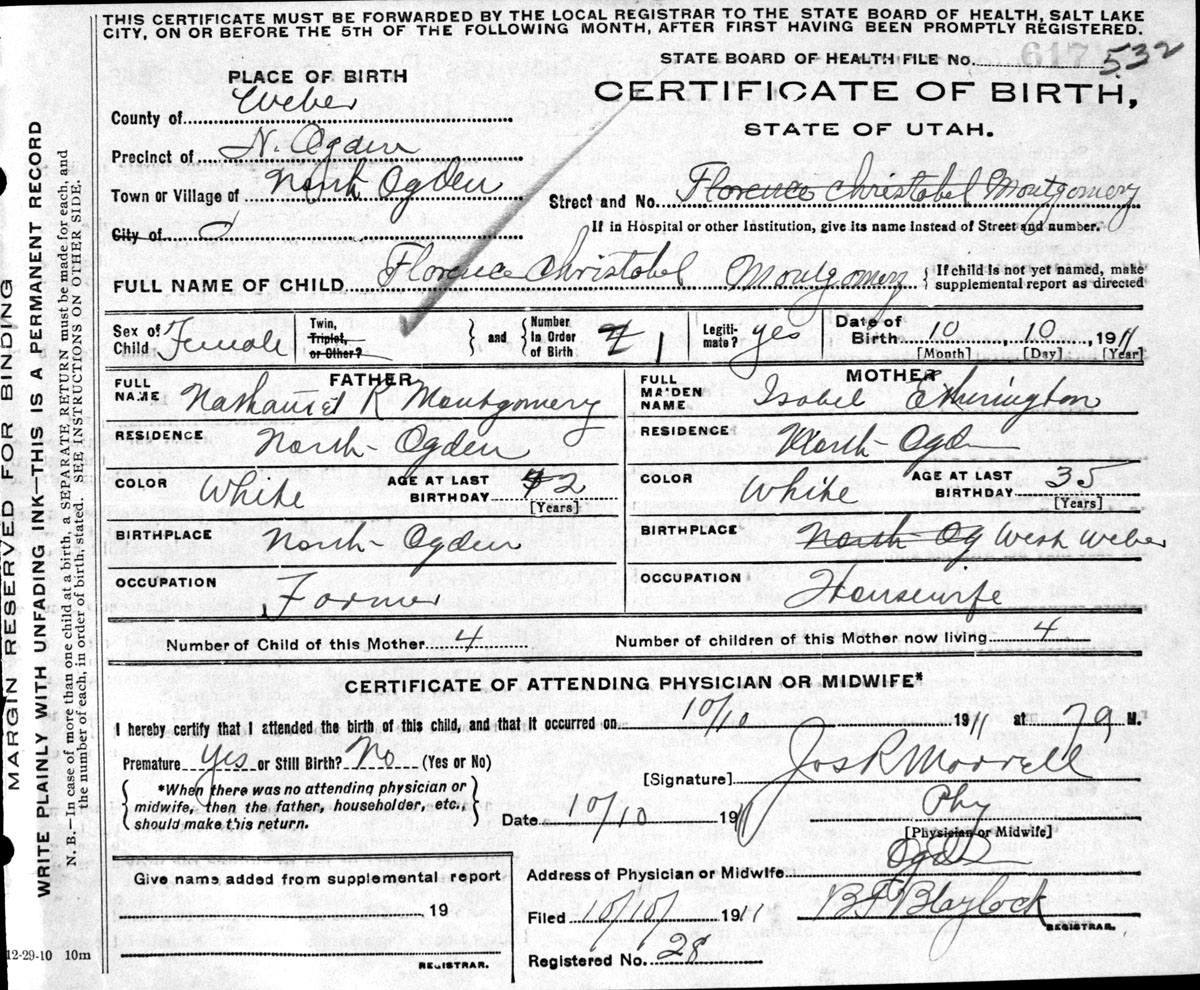 THIS CERTIFICATE MUST BE FORWARDED BY THE LOCAL REGISTRAR TO THE STATE BOARD OF HEALTH, SALT LAKE
CITY, ON OR BEFORE THE 5TH OF THE FOLLOWING MONTH, AFTER FIRST HAVING BEEN PROMPTLY REGISTERED.
STATE BOARD OF HEALTH FILE No. 617 532
PLACE OF BIRTH
CERTIFICATE OF BIRTH,
STATE OF UTAH.
County of Weber
Precinct of N. Ogden
Town or Village of North Ogden
Street and No. Florence Christobel Montgomery
City of
If in Hospital or other Institution, give its name instead of Street and number.
FULL NAME OF CHILD Florence Christobel Montgomery
{ If child is not yet named, make
supplemental report as directed
Sex of Child Female
Twin, Triplet, or Other?
} and { Number In Order of Birth 1
Legiti- mate? yes
Date of Birth 10, 10, 1911
[Month] [Day] [Year]
FATHER
FULL NAME Nathaniel R Montgomery
RESIDENCE North Ogden
COLOR White AGE AT LAST BIRTHDAY 42 [Years]
BIRTHPLACE North Ogden
OCCUPATION Farmer
MOTHER
FULL MAIDEN NAME Isobel Etherington
RESIDENCE North Ogden
COLOR White AGE AT LAST BIRTHDAY 35 [Years]
BIRTHPLACE North Og West Weber
OCCUPATION Housewife
Number of Child of this Mother 4 Number of children of this Mother now living 4
CERTIFICATE OF ATTENDING PHYSICIAN OR MIDWIFE*
I hereby certify that I attended the birth of this child, and that it occurred on 10/10 1911 at 79 M.
Premature yes or Still Birth? No (Yes or No)
{ *When there was no attending physician or
midwife, then the father, householder, etc.,
should make this return. }
[Signature] Jos R Morrell
Date 10/10 1911 Phy
[Physician or Midwife]
Address of Physician or Midwife Ogden
Filed 10/10/ 1911 BF Blaylock
REGISTRAR.
Registered No. 28
Give name added from supplemental report
, 19
REGISTRAR.
12-29-10 10m
MARGIN RESERVED FOR BINDING
WRITE PLAINLY WITH UNFADING INK—THIS IS A PERMANENT RECORD
N. B.—In case of more than one child at a birth, a SEPARATE RETURN must be made for each, and
the number of each, in order of birth, stated. SEE INSTRUCTIONS ON OTHER SIDE.